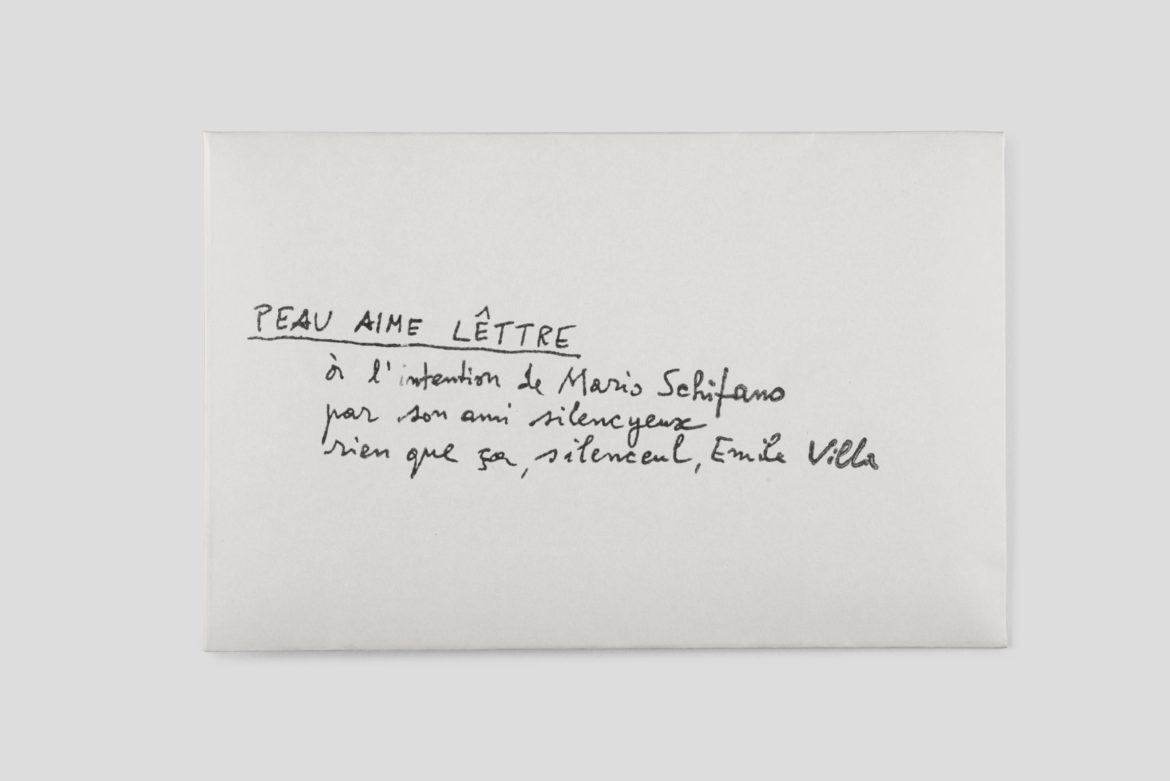 PEAU AIME LÊTTRE
à l'intention de Mario Schifano
par son ami silencyeux
rien que ça, silenceul, Emile Villa